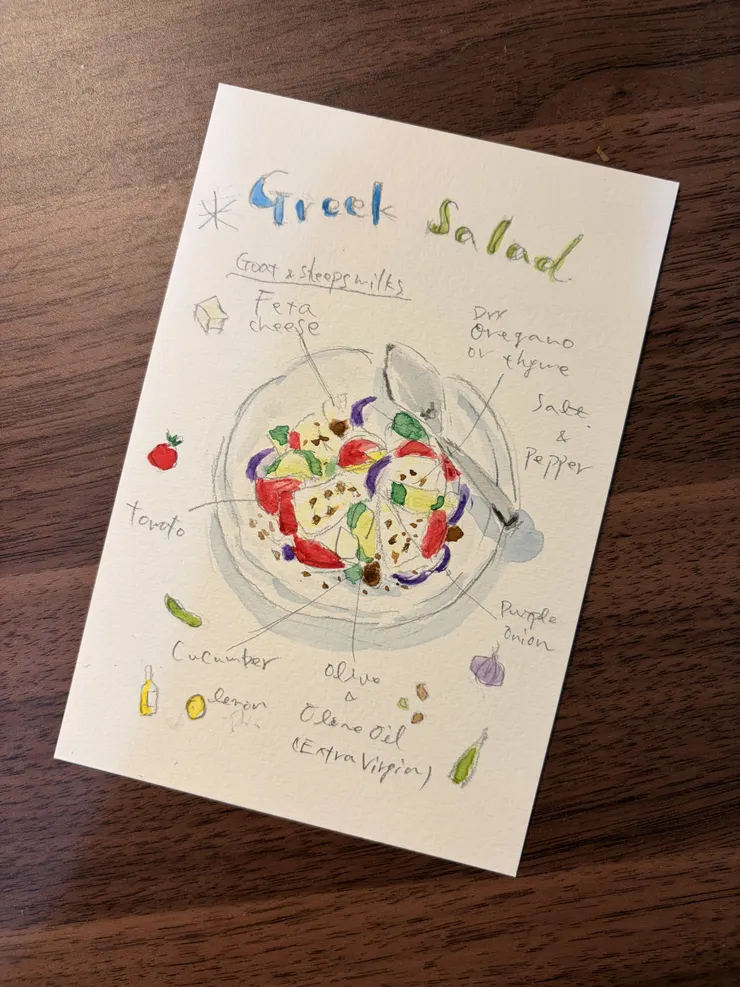 * Greek Salad
Goat & sheeps milks
Feta
cheese
Dry
Oregano
or thyme
Salt
&
Pepper
tomato
Purple
onion
Cucumber
olive
&
Olive Oil
(Extra Virgin)
lemon